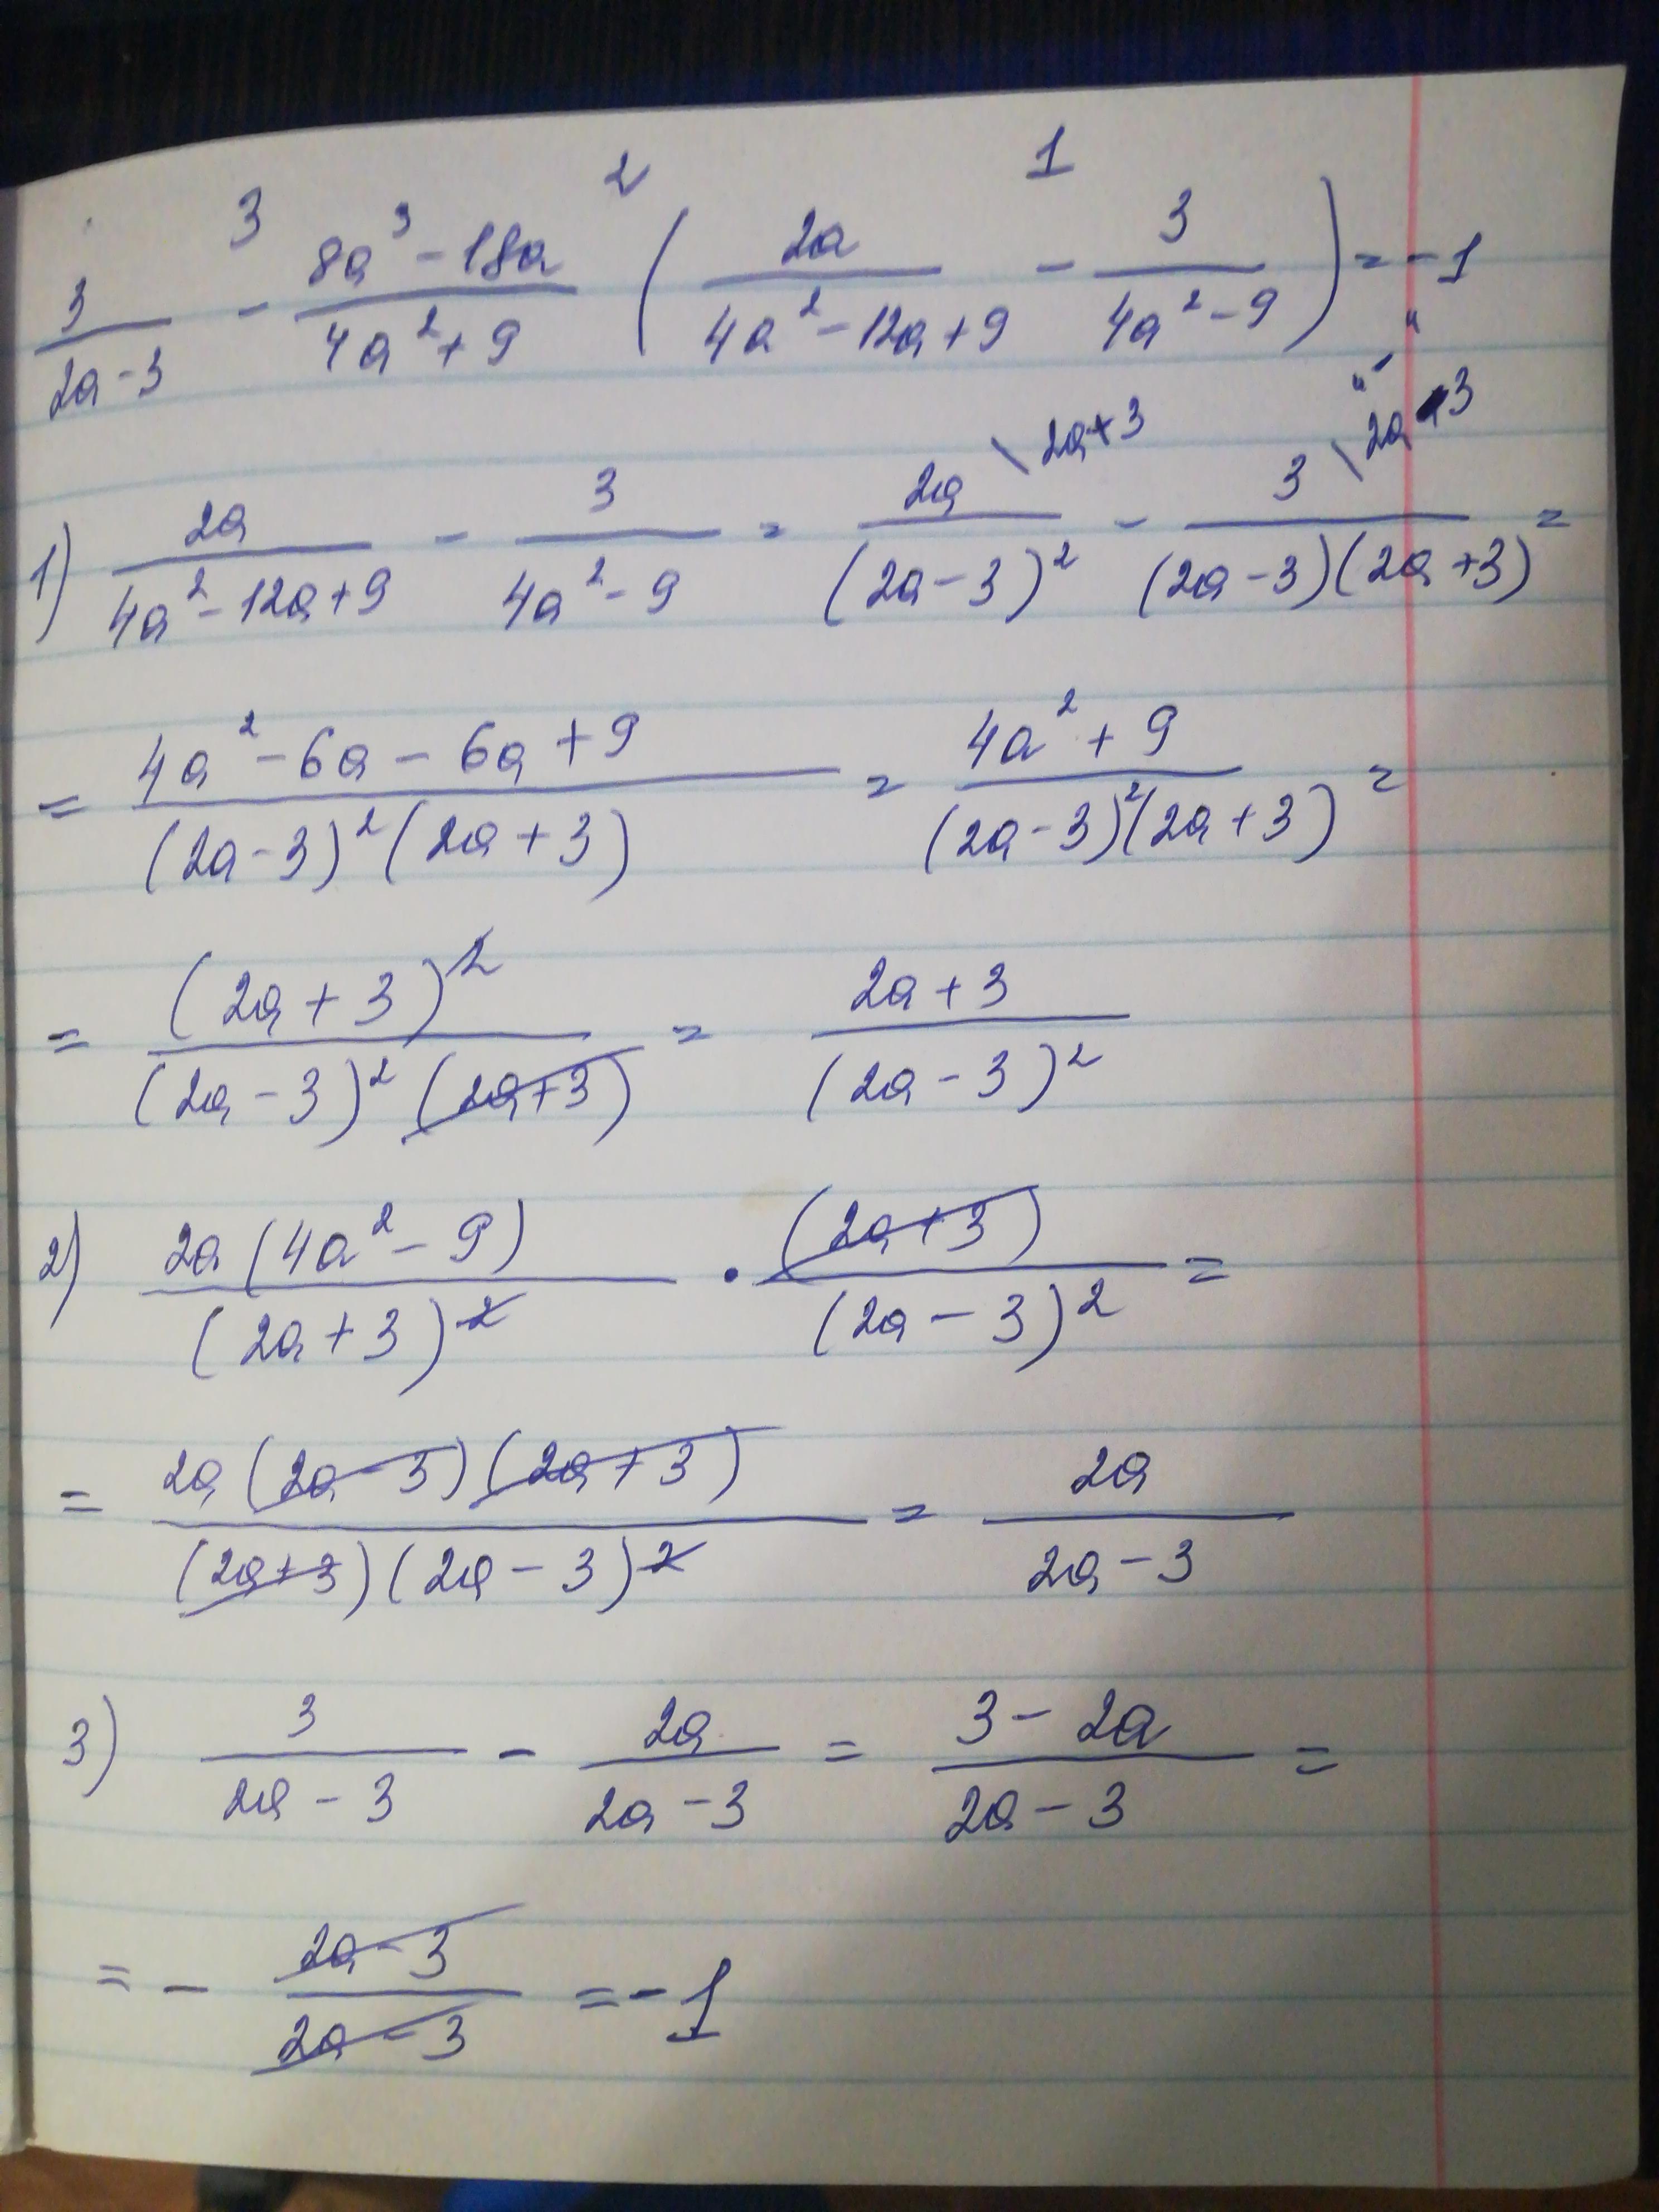 3 2 1
3/(2a-3) - (8a³-18a)/(4a²+9) (2a/(4a²-12a+9) - 3/(4a²-9)) = -1
"-"
1) 2a/(4a²-12a+9) - 3/(4a²-9) = 2a\2a+3/(2a-3)² - 3\2a-3/((2a-3)(2a+3)) =
= (4a²-6a-6a+9)/((2a-3)²(2a+3)) = (4a²+9)/((2a-3)²(2a+3)) =
= (2a+3)²/((2a-3)²(2a+3)) = (2a+3)/(2a-3)²
2) 2a(4a²-9)/(2a+3)² · (2a+3)/(2a-3)² =
= 2a(2a-3)(2a+3)/((2a+3)(2a-3)²) = 2a/(2a-3)
3) 3/(2a-3) - 2a/(2a-3) = (3-2a)/(2a-3) =
= - (2a-3)/(2a-3) = -1